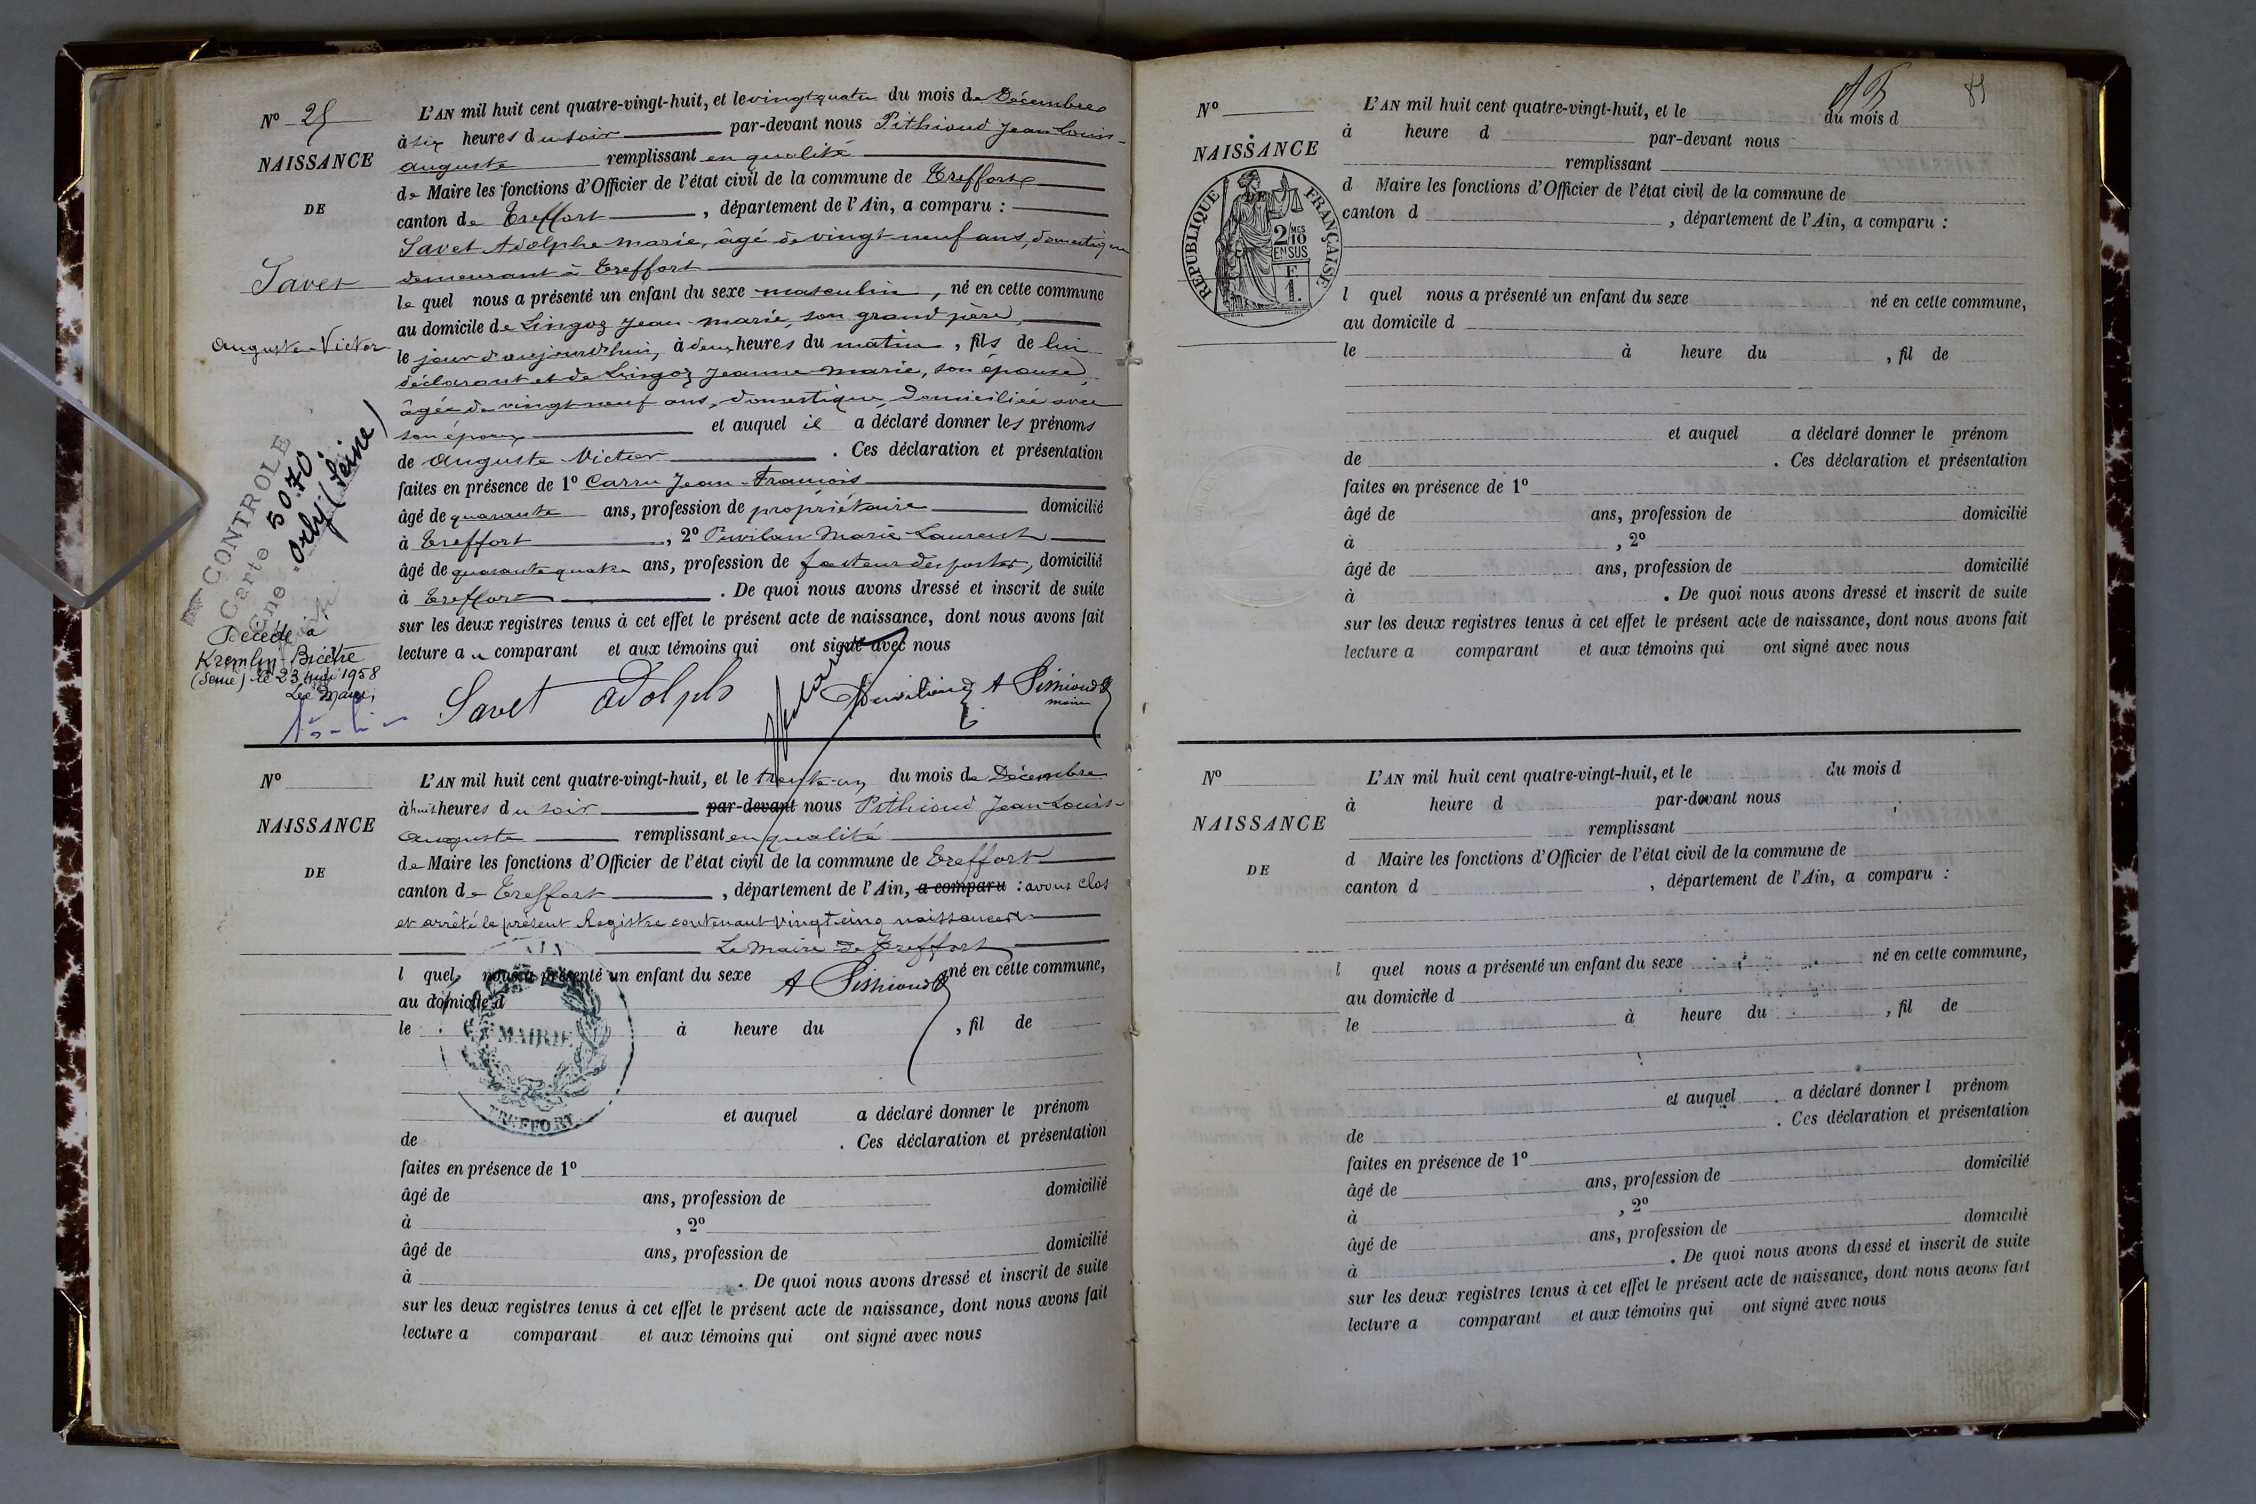 Nº 25
NAISSANCE
DE
Savet
Auguste-Victor
L'AN mil huit cent quatre-vingt-huit, et le vingt quatre du mois de Décembre
à six heures du soir par-devant nous Pithioud Jean-Louis-
Auguste remplissant en qualité
de Maire les fonctions d'Officier de l'état civil de la commune de Treffort
canton de Treffort, département de l'Ain, a comparu :
Savet Adolphe Marie, âgé de vingt neuf ans, domestique
demeurant à Treffort
le quel nous a présenté un enfant du sexe masculin, né en cette commune
au domicile de Lingoz Jean-Marie, son grand père,
le jour d'aujourd'hui, à deux heures du matin, fils de lui
déclarant et de Lingoz Jeanne Marie, son épouse,
âgée de vingt neuf ans, domestique, domiciliée avec
son époux et auquel il a déclaré donner les prénoms
de Auguste Victor. Ces déclaration et présentation
faites en présence de 1º Carru Jean-François
âgé de quarante ans, profession de propriétaire domicilié
à Treffort, 2º Marie-Laurent
âgé de quarante quatre ans, profession de facteur des postes, domicilié
à Treffort. De quoi nous avons dressé et inscrit de suite
sur les deux registres tenus à cet effet le présent acte de naissance, dont nous avons fait
lecture au comparant et aux témoins qui ont signé avec nous
Savet Adolphe A Pithioud
maire
CONTROLE
Carte 5070
Cne Orly (Seine)
Décédé à
Kremlin-Bicêtre
(Seine) le 23 1958
Le Maire,
Nº
NAISSANCE
DE
L'AN mil huit cent quatre-vingt-huit, et le trente-un du mois de Décembre
à huit heures du soir par-devant nous Pithioud Jean-Louis-
Auguste remplissant en qualité
de Maire les fonctions d'Officier de l'état civil de la commune de Treffort
canton de Treffort, département de l'Ain, a comparu : avons clos
et arrêté le présent Registre contenant vingt cinq naissances
Le Maire de Treffort
l quel nous a présenté un enfant du sexe né en cette commune,
A Pithioud
au domicile d
le à heure du , fil de
MAIRIE
TREFFORT
et auquel a déclaré donner le prénom
de . Ces déclaration et présentation
faites en présence de 1º
âgé de ans, profession de domicilié
à , 2º
âgé de ans, profession de domicilié
à . De quoi nous avons dressé et inscrit de suite
sur les deux registres tenus à cet effet le présent acte de naissance, dont nous avons fait
lecture a comparant et aux témoins qui ont signé avec nous
Nº
NAISSANCE
DE
RÉPUBLIQUE FRANÇAISE
2/10 MES
EN SUS
F.
1.
L'AN mil huit cent quatre-vingt-huit, et le du mois d
à heure d par-devant nous
remplissant
d Maire les fonctions d'Officier de l'état civil de la commune de
canton d , département de l'Ain, a comparu :
l quel nous a présenté un enfant du sexe né en cette commune,
au domicile d
le à heure du , fil de
et auquel a déclaré donner le prénom
de . Ces déclaration et présentation
faites en présence de 1º
âgé de ans, profession de domicilié
à , 2º
âgé de ans, profession de domicilié
à . De quoi nous avons dressé et inscrit de suite
sur les deux registres tenus à cet effet le présent acte de naissance, dont nous avons fait
lecture a comparant et aux témoins qui ont signé avec nous
Nº
NAISSANCE
DE
L'AN mil huit cent quatre-vingt-huit, et le du mois d
à heure d par-devant nous
remplissant
d Maire les fonctions d'Officier de l'état civil de la commune de
canton d , département de l'Ain, a comparu :
l quel nous a présenté un enfant du sexe né en cette commune,
au domicile d
le à heure du , fil de
et auquel a déclaré donner l prénom
de . Ces déclaration et présentation
faites en présence de 1º
âgé de ans, profession de domicilié
à , 2º
âgé de ans, profession de domicilié
à . De quoi nous avons dressé et inscrit de suite
sur les deux registres tenus à cet effet le présent acte de naissance, dont nous avons fait
lecture a comparant et aux témoins qui ont signé avec nous